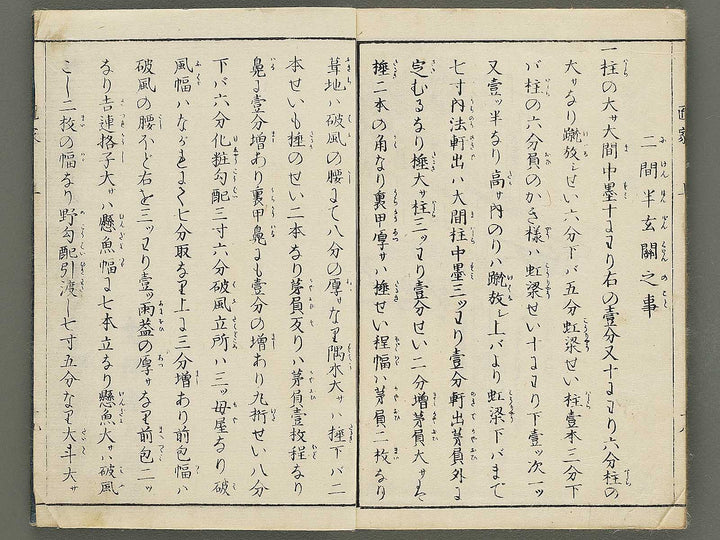 二間半玄關之事
一柱の大サ大間中墨十にわり右の壹分又十にわり六分柱の
大サなり蹴放しせい六分下バ五分虹梁せい柱壹本三分下
バ柱の六分眉のかき様ハ虹梁せい十にわり下壹ッ次一ッ
又壹ッ半なり高サ内のりハ蹴放し上バより虹梁下バまで
七寸内法軒出ハ大間柱中墨三ッわり壹分軒出茅負外に
定むるなり棰大サ柱三ッわり壹分せい二分増茅負大サも
棰二本の角なり裏甲厚サハ棰せい程幅ハ茅負二枚なり
葺地ハ破風の腰にて八分の厚サなり隅木大サハ棰下バ二
本せいも棰のせい二本なり茅負反りハ茅負壹枚程なり
鼻に壹分増あり裏甲鼻にも壹分の増あり丸桁せい八分
下バ六分化粧勾配三寸六分破風立所ハ三ッ母屋なり破
風幅ハながれ七分取なり上に三分増あり前包幅ハ
破風の腰ほど右を三ッわり壹ッ雨葢の厚サなり前包二ッ
なり吉連格子大サハ懸魚幅に七本立なり懸魚大サハ破風
こし二枚の幅なり野勾配引渡し七寸五分なり大斗大サ